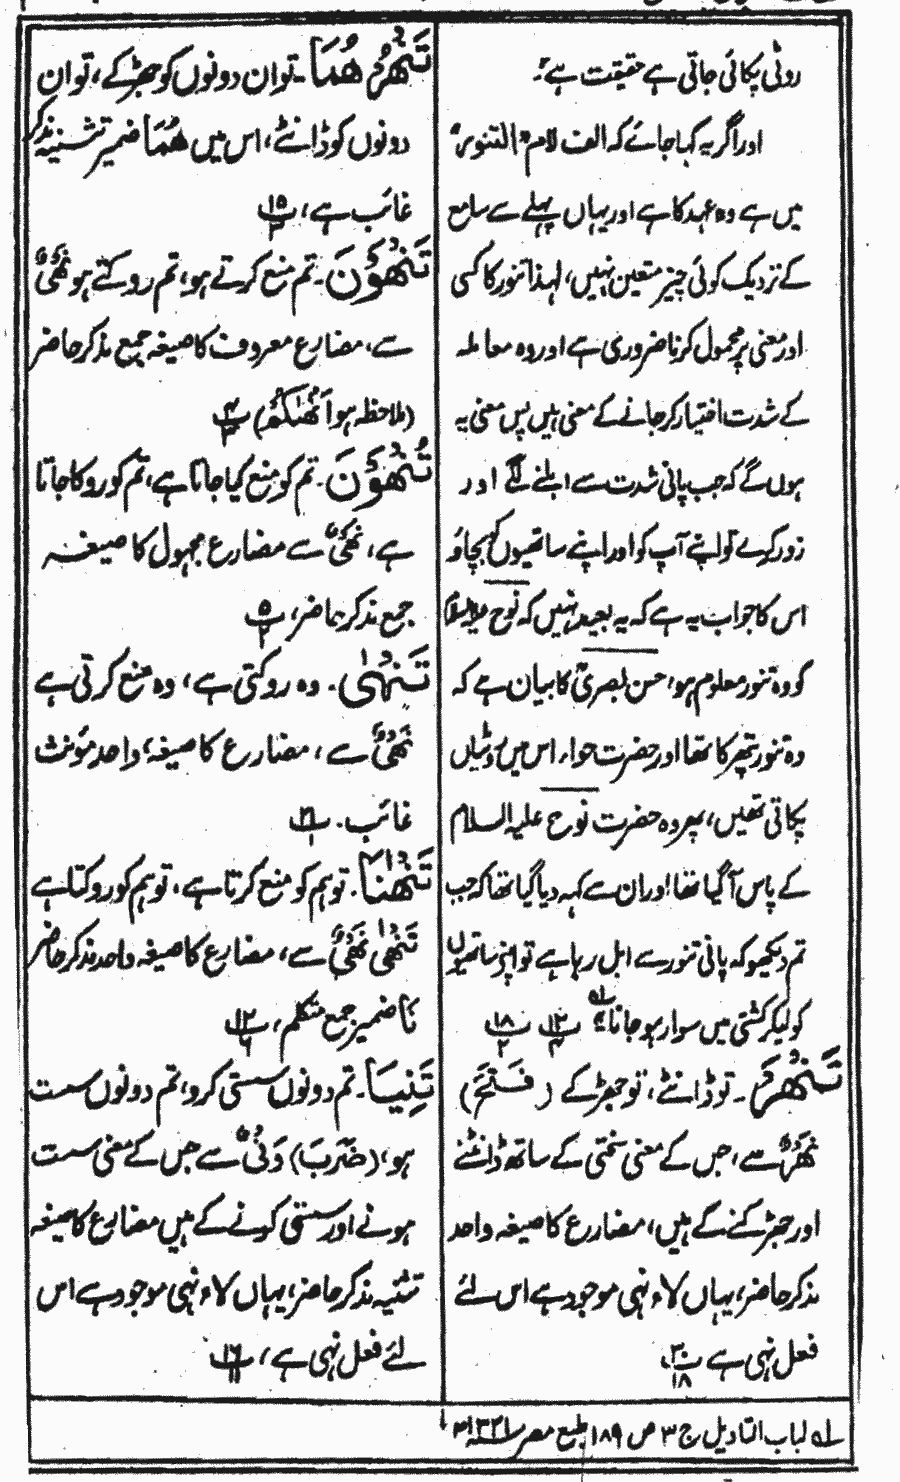 روٹی پکائی جاتی ہے حقیقت ہے؟
اور اگر یہ کہا جائے کہ الف لام "التنور"
میں ہے وہ عہد کا ہے اور یہاں پہلے سے سامع
کے نزدیک کوئی چیز متعین نہیں، لہذا تنور کا کسی
اور معنی پر محمول کرنا ضروری ہے اور وہ معاملہ
کے شدت اختیار کر جانے کے معنی ہیں پس معنی یہ
ہوں گے کہ جب پانی شدت سے ابلنے لگے اور
زور کرے تو اپنے آپ کو اور اپنے ساتھیوں کو بچاؤ
اس کا جواب یہ ہے کہ یہ بعید نہیں کہ نوح علیہ السلام
کو وہ تنور معلوم ہو، حسن بصریؒ کا بیان ہے کہ
وہ تنور پتھر کا تھا اور حضرت حواء اس میں روٹیاں
پکاتی تھیں، پھر وہ حضرت نوح علیہ السلام
کے پاس آگیا تھا اور ان سے کہہ دیا گیا تھا کہ جب
تم دیکھو کہ پانی تنور سے ابل رہا ہے تو اپنے ساتھیوں
کو لیکر کشتی میں سوار ہو جانا ؎ ۱۲ ۱۸
تَنْهَرْ۔ تو ڈانٹے، تو جھڑکے (فَتَحَ)
نَهْرٌ سے، جس کے معنی سختی کے ساتھ ڈانٹنے
اور جھڑکنے کے ہیں، مضارع کا صیغہ واحد
مذکر حاضر، یہاں لاء نہی موجود ہے اس لئے
فعل نہی ہے ۳۰/۱۸
تَنْهَرْهُمَا۔ تو ان دونوں کو جھڑکے، تو ان
دونوں کو ڈانٹے، اس میں هُمَا ضمیر تثنیہ مذکر
غائب ہے، ۱۵
تَنْهَوْنَ۔ تم منع کرتے ہو، تم روکتے ہو نَهْيٌ
سے، مضارع معروف کا صیغہ جمع مذکر حاضر
(ملاحظہ ہو اَنْهٰىكُمْ) ۴
تُنْهَوْنَ۔ تم کو منع کیا جاتا ہے، تم کو روکا جاتا
ہے، نَهْيٌ سے مضارع مجہول کا صیغہ
جمع مذکر حاضر، ۵/۲
تَنْهٰى۔ وہ روکتی ہے، وہ منع کرتی ہے
نَهْيٌ سے، مضارع کا صیغہ، واحد مؤنث
غائب۔ ۲۱/۱
تَنْهٰنَا۔ تو ہم کو منع کرتا ہے، تو ہم کو روکتا ہے
تَنْهٰى نَهْيٌ سے، مضارع کا صیغہ واحد مذکر حاضر
نَا ضمیر جمع متکلم، ۱۲/۶
تَنِيَا۔ تم دونوں سستی کرو، تم دونوں سست
ہو، (ضَرَبَ) وَنْيٌ سے جس کے معنی سست
ہونے اور سستی کرنے کے ہیں مضارع کا صیغہ
تثنیہ مذکر حاضر، یہاں لاء نہی موجود ہے اس
لئے فعل نہی ہے، ۱۶/۱۱
؎ لباب التاویل ج ۳ ص ۱۸۹ طبع مصر ۱۳۳۱ھ